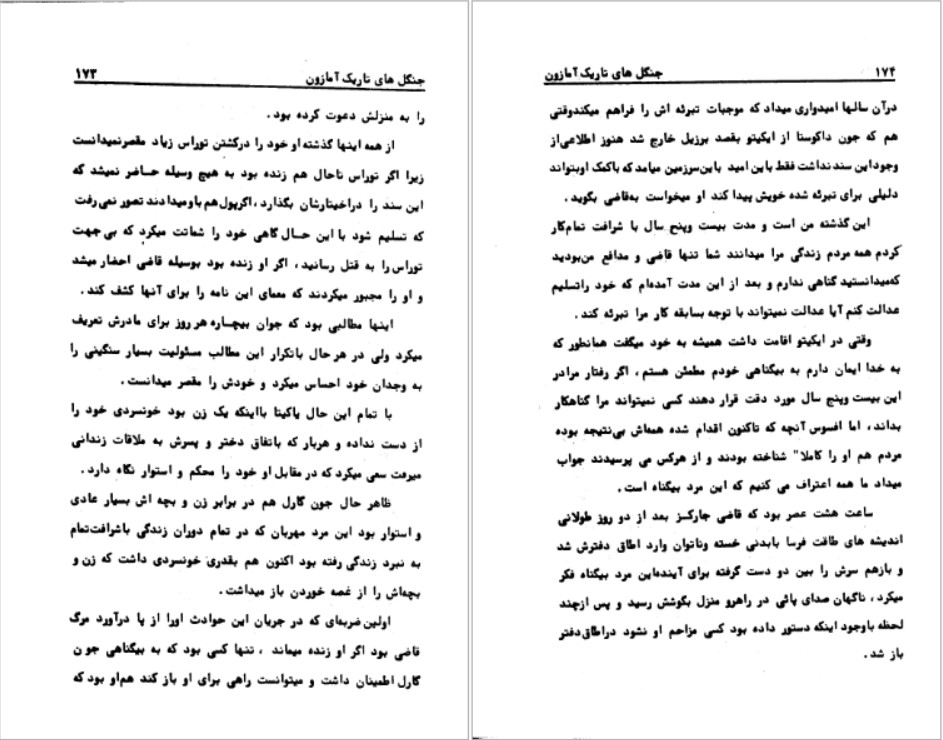 جنگل های تاریک آمازون ۱۷۳
را به منزلش دعوت کرده بود.
از همه اینها گذشته او خود را درکشتن توراس زیاد مقصرنمیدانست
زیرا اگر توراس تاحال هم زنده بود به هیچ وسیله حاضر نمیشد که
این سند را دراختیارشان بگذارد، اگرپول هم باومیدادند تصور نمی‌رفت
که تسلیم شود با این حال گاهی خود را شماتت میکرد که بی جهت
توراس را به قتل رسانید، اگر او زنده بود بوسیله قاضی احضار میشد
و او را مجبور میکردند که معمای این نامه را برای آنها کشف کند.
اینها مطالبی بود که جوان بیچاره هر روز برای مادرش تعریف
میکرد ولی در هر حال باتکرار این مطالب مسئولیت بسیار سنگینی را
به وجدان خود احساس میکرد و خودش را مقصر میدانست.
با تمام این حال یاکیتا بااینکه یک زن بود خونسردی خود را
از دست نداده و هربار که باتفاق دختر و پسرش به ملاقات زندانی
میرفت سعی میکرد که در مقابل او خود را محکم و استوار نگاه دارد.
ظاهر حال جون گارل هم در برابر زن و بچه اش بسیار عادی
و استوار بود این مرد مهربان که در تمام دوران زندگی باشرافت‌تمام
به نبرد زندگی رفته بود اکنون هم بقدری خونسردی داشت که زن و
بچه‌اش را از غصه خوردن باز میداشت.
اولین ضربه‌ای که در جریان این حوادث اورا از پا درآورد مرگ
قاضی بود اگر او زنده میماند، تنها کسی بود که به بیگناهی جون
گارل اطمینان داشت و میتوانست راهی برای او باز کند هم‌او بود که
۱۷۴ جنگل های تاریک آمازون
درآن سالها امیدواری میداد که موجبات تبرئه اش را فراهم میکندوقتی
هم که جون داکوستا از ایکیتو بقصد برزیل خارج شد هنوز اطلاعی‌از
وجوداین سند نداشت فقط باین امید باین‌سرزمین میامد که باکمک اوبتواند
دلیلی برای تبرئه شده خویش پیدا کند او میخواست به‌قاضی بگوید.
این گذشته من است و مدت بیست وپنج سال با شرافت تمام‌کار
کردم همه مردم زندگی مرا میدانند شما تنها قاضی و مدافع من‌بودید
که‌میدانستید گناهی ندارم و بعد از این مدت آمده‌ام که خود راتسلیم
عدالت کنم آیا عدالت نمیتواند با توجه بسابقه کار مرا تبرئه کند.
وقتی در ایکیتو اقامت داشت همیشه به خود میگفت همانطور که
به خدا ایمان دارم به بیگناهی خودم مطمئن هستم، اگر رفتار مرادر
این بیست وپنج سال مورد دقت قرار دهند کسی نمیتواند مرا گناهکار
بداند، اما افسوس آنچه که تاکنون اقدام شده همه‌اش بی‌نتیجه بوده
مردم هم او را کاملا" شناخته بودند و از هرکس می پرسیدند جواب
میداد ما همه اعتراف می کنیم که این مرد بیگناه است.
ساعت هشت عصر بود که قاضی جارکز بعد از دو روز طولانی
اندیشه های طاقت فرسا بابدنی خسته وناتوان وارد اطاق دفترش شد
و بازهم سرش را بین دو دست گرفته برای آینده‌این مرد بیگناه فکر
میکرد، ناگهان صدای پائی در راهرو منزل بگوشش رسید و پس ازچند
لحظه باوجود اینکه دستور داده بود کسی مزاحم او نشود دراطاق‌دفتر
باز شد.